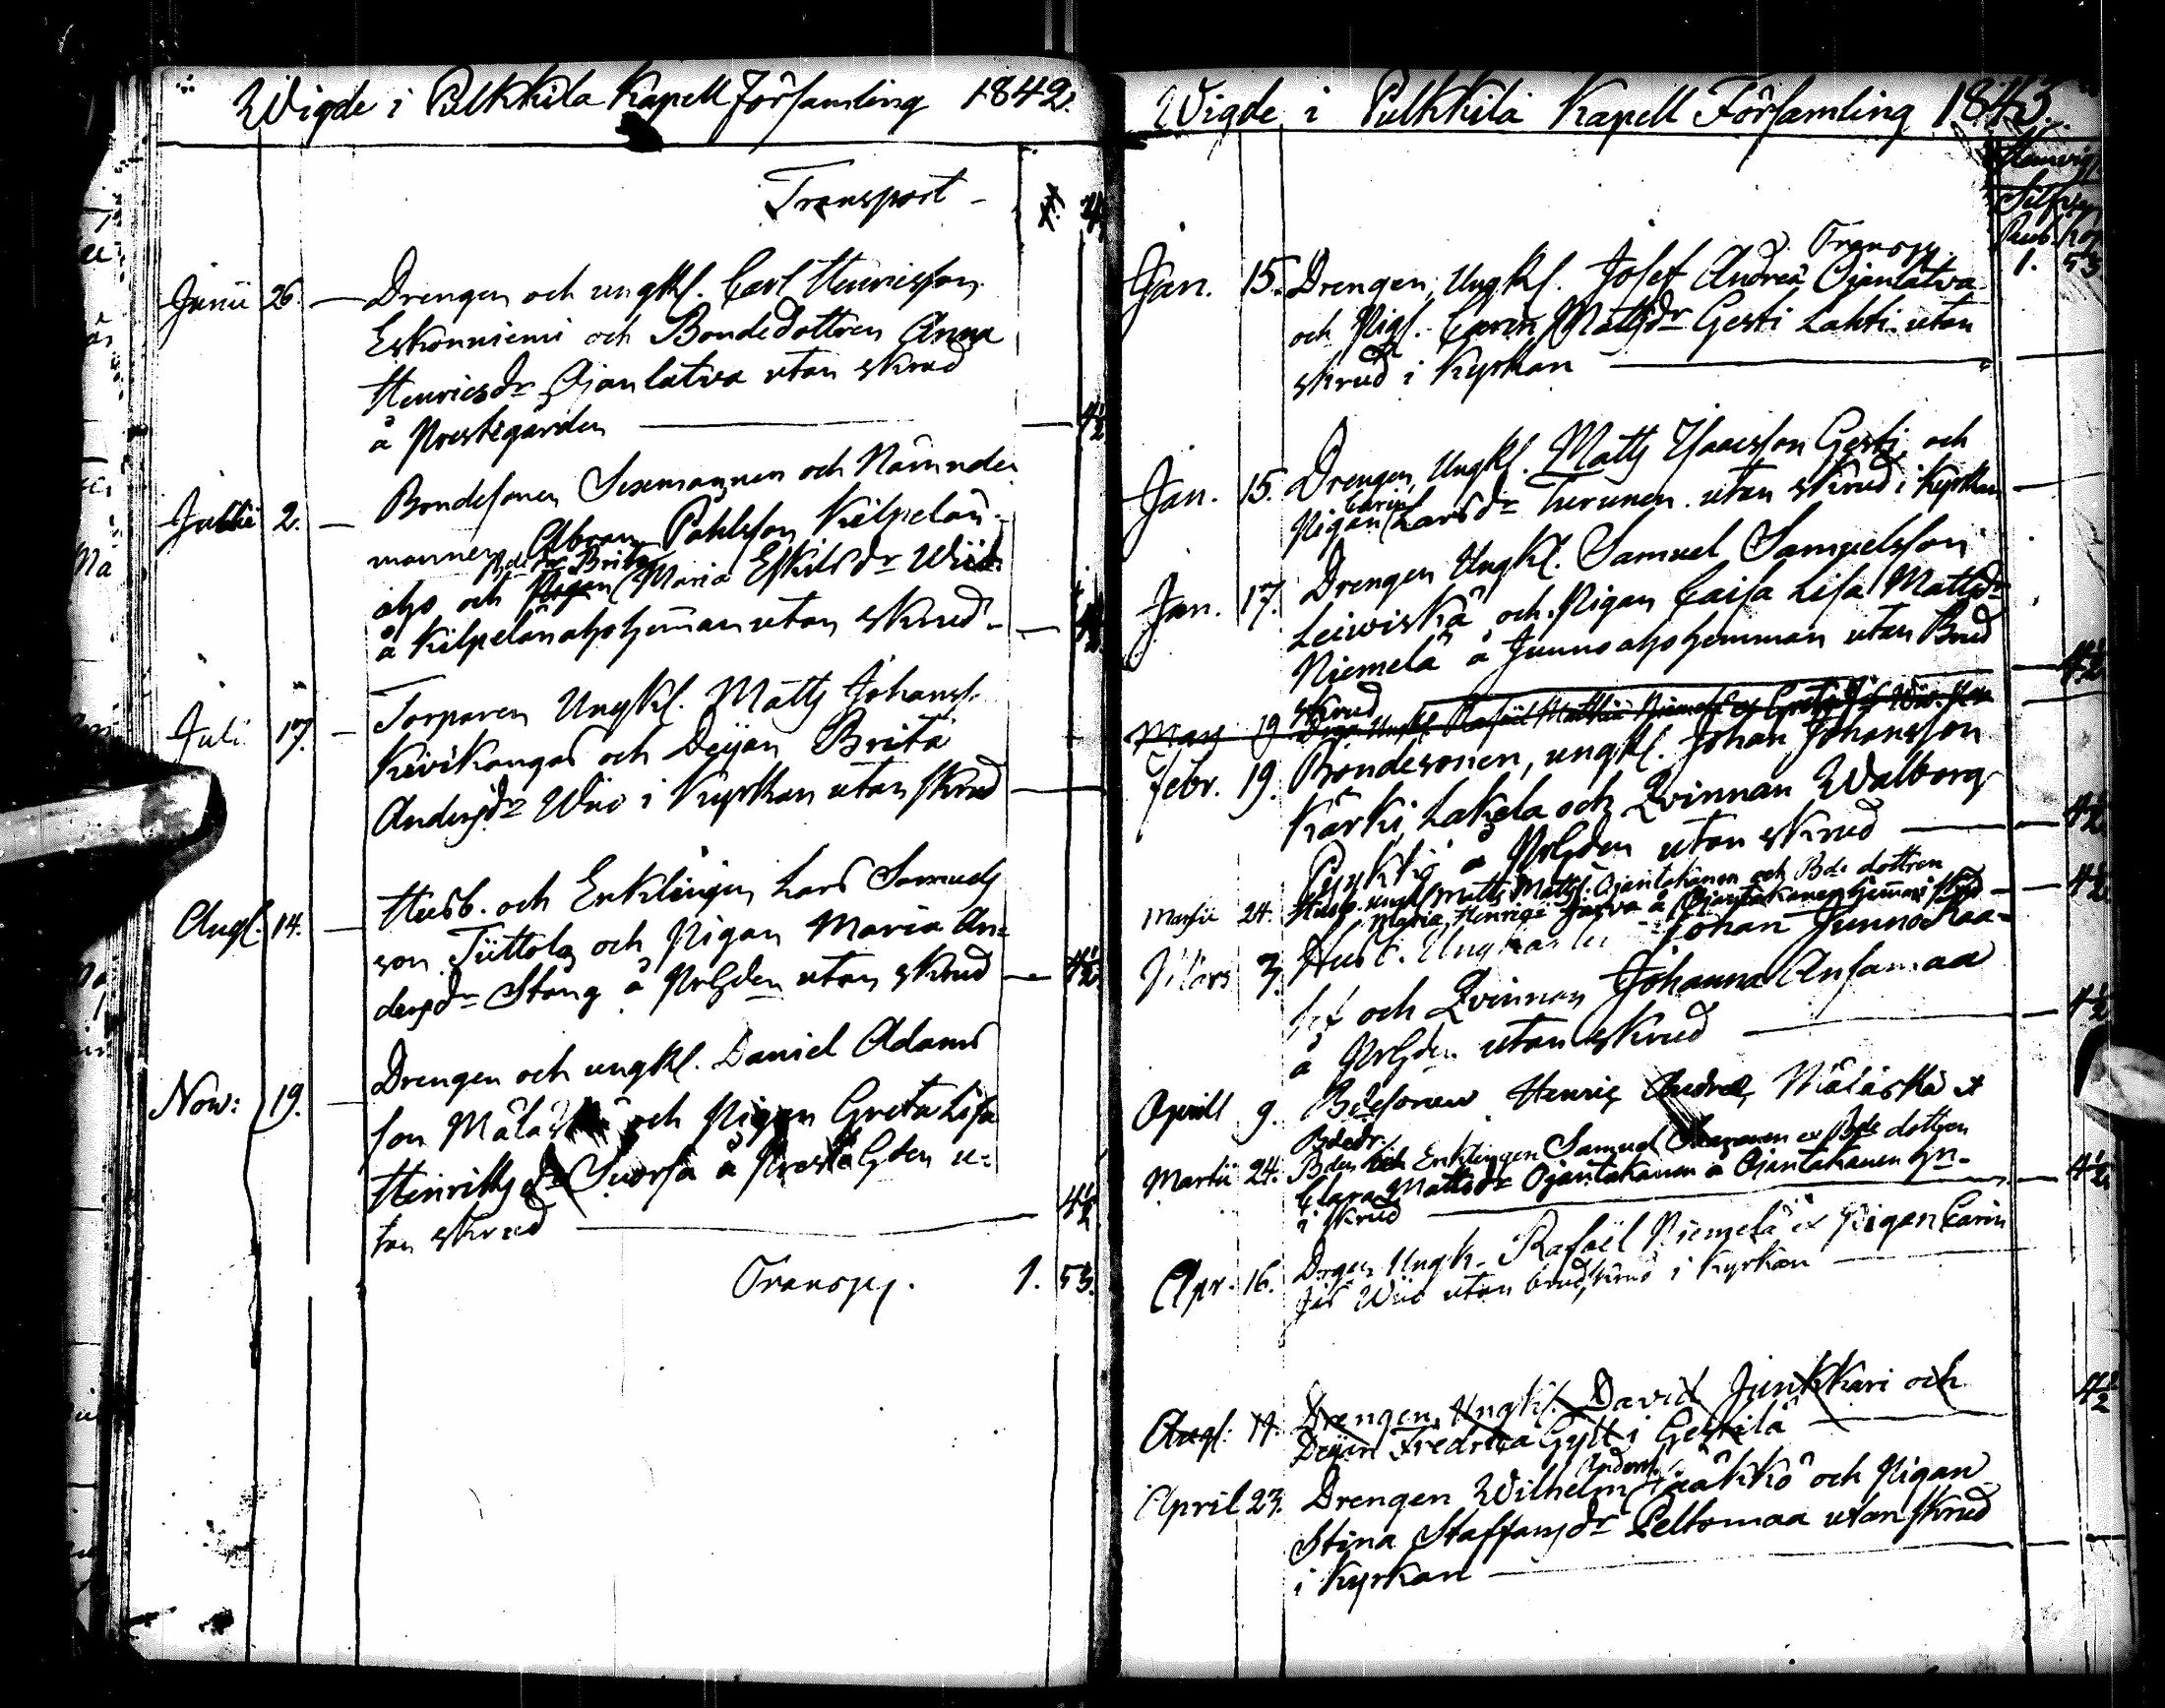 Wigde i Pulkkila Kapell Församling 1842.
Transport -
Junii 26. — Drengen och ungkl. Carl Henricsson
Eskonniemi och Bondedottren Anna
Henricsdr Ojanlatva utan skrud
å Prestegården — 4½
Julii 2. — Bondesonen Sexmannen och Nämnde-
mannen Abram Påhlsson Kilpelän-
Bdedr Brita
aho och Pigan Maria Eskilsdr Wiit-
å Kilpelänaho hemman utan skrud -
Juli 17. — Torparen Ungkl. Matts Johanss.
Kivikangas och Deijan Brita
Andersdr Wuo i Kyrkan utan skrud —
Augl. 14. — Husb. och Enklingen Lars Samuels
son Tiittola och Pigan Maria An-
dersdr Stång å PrGden utan skrud — 4½
Nov: 19. — Drengen och ungkl. Daniel Adams
son Mäläskä och Pigan Greta Lisa
Henriksdr Suorsa å Preste Gden u-
tan skrud — 4½
Transp. 1. 53.
Wigde i Pulkkila Kapell Församling 1843.
Silfver
Rub. Kop
Transp. 1. 53
Jan. 15. Drengen, Ungkl. Josef Andreæ Ojanlatva
och Pig. Carin Mattsdr Gesti Lahti utan
skrud i Kyrkan —
Jan. 15. Drengen, Ungkl. Matts Isacsson Gesti och
Carin
Pigan Larsdr Turunen utan skrud i Kyrkan —
Jan. 17. Drengen Ungkl. Samuel Samuelsson
Leiviskä och Pigan Caisa Lisa Mattsdr
Niemelä å Junnoaho hemman utan Brud
skrud — 4½
Mars 19
Febr. 19. Bondesonen, ungkl. Johan Johansson
Kärki Lakela och Qvinnan Walborg
å PrGden utan skrud — 4½
Martii 24. Husb. ungkl. Matts Mattss. Ojantakanen och Bde dottren
Maria Henrici Järva å Ojantakanen hemman i skrud — 4½
Mars 3. Husb. Ungkarlen Johan Junno Kaa-
och Qvinnan Johanna Ansamaa
å PrGden utan skrud — 4½
Aprill 9. Bdesonen Henric Andreæ Mäläskä et
Bdedr.
Martii 24. Bden och Enklingen Samuel ex Bde dottren
Clara Mattsdr Ojantakanen å Ojantakanen hn.
i skrud — 4½
Apr. 16. Drgen Ungk. Rafaël Niemelä et Pigan Carin
Wuo utan brudskrud i Kyrkan —
Augl: 14. Drengen, Ungkl. David Junkkari och
Deijan Fredrica Gylt i Gestilä — 4½
Anders.
April 23. Drengen Wilhelm Jääkkö och Pigan
Stina Staffansdr Peltomaa utan skrud
i Kyrkan —